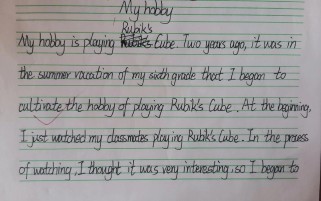 My hobby
My hobby is playing Rubik's Cube. Two years ago, it was in
the summer vacation of my sixth grade that I began to
cultivate the hobby of playing Rubik's Cube. At the beginning,
I just watched my classmates playing Rubik's Cube. In the process
of watching, I thought it was very interesting, so I began to